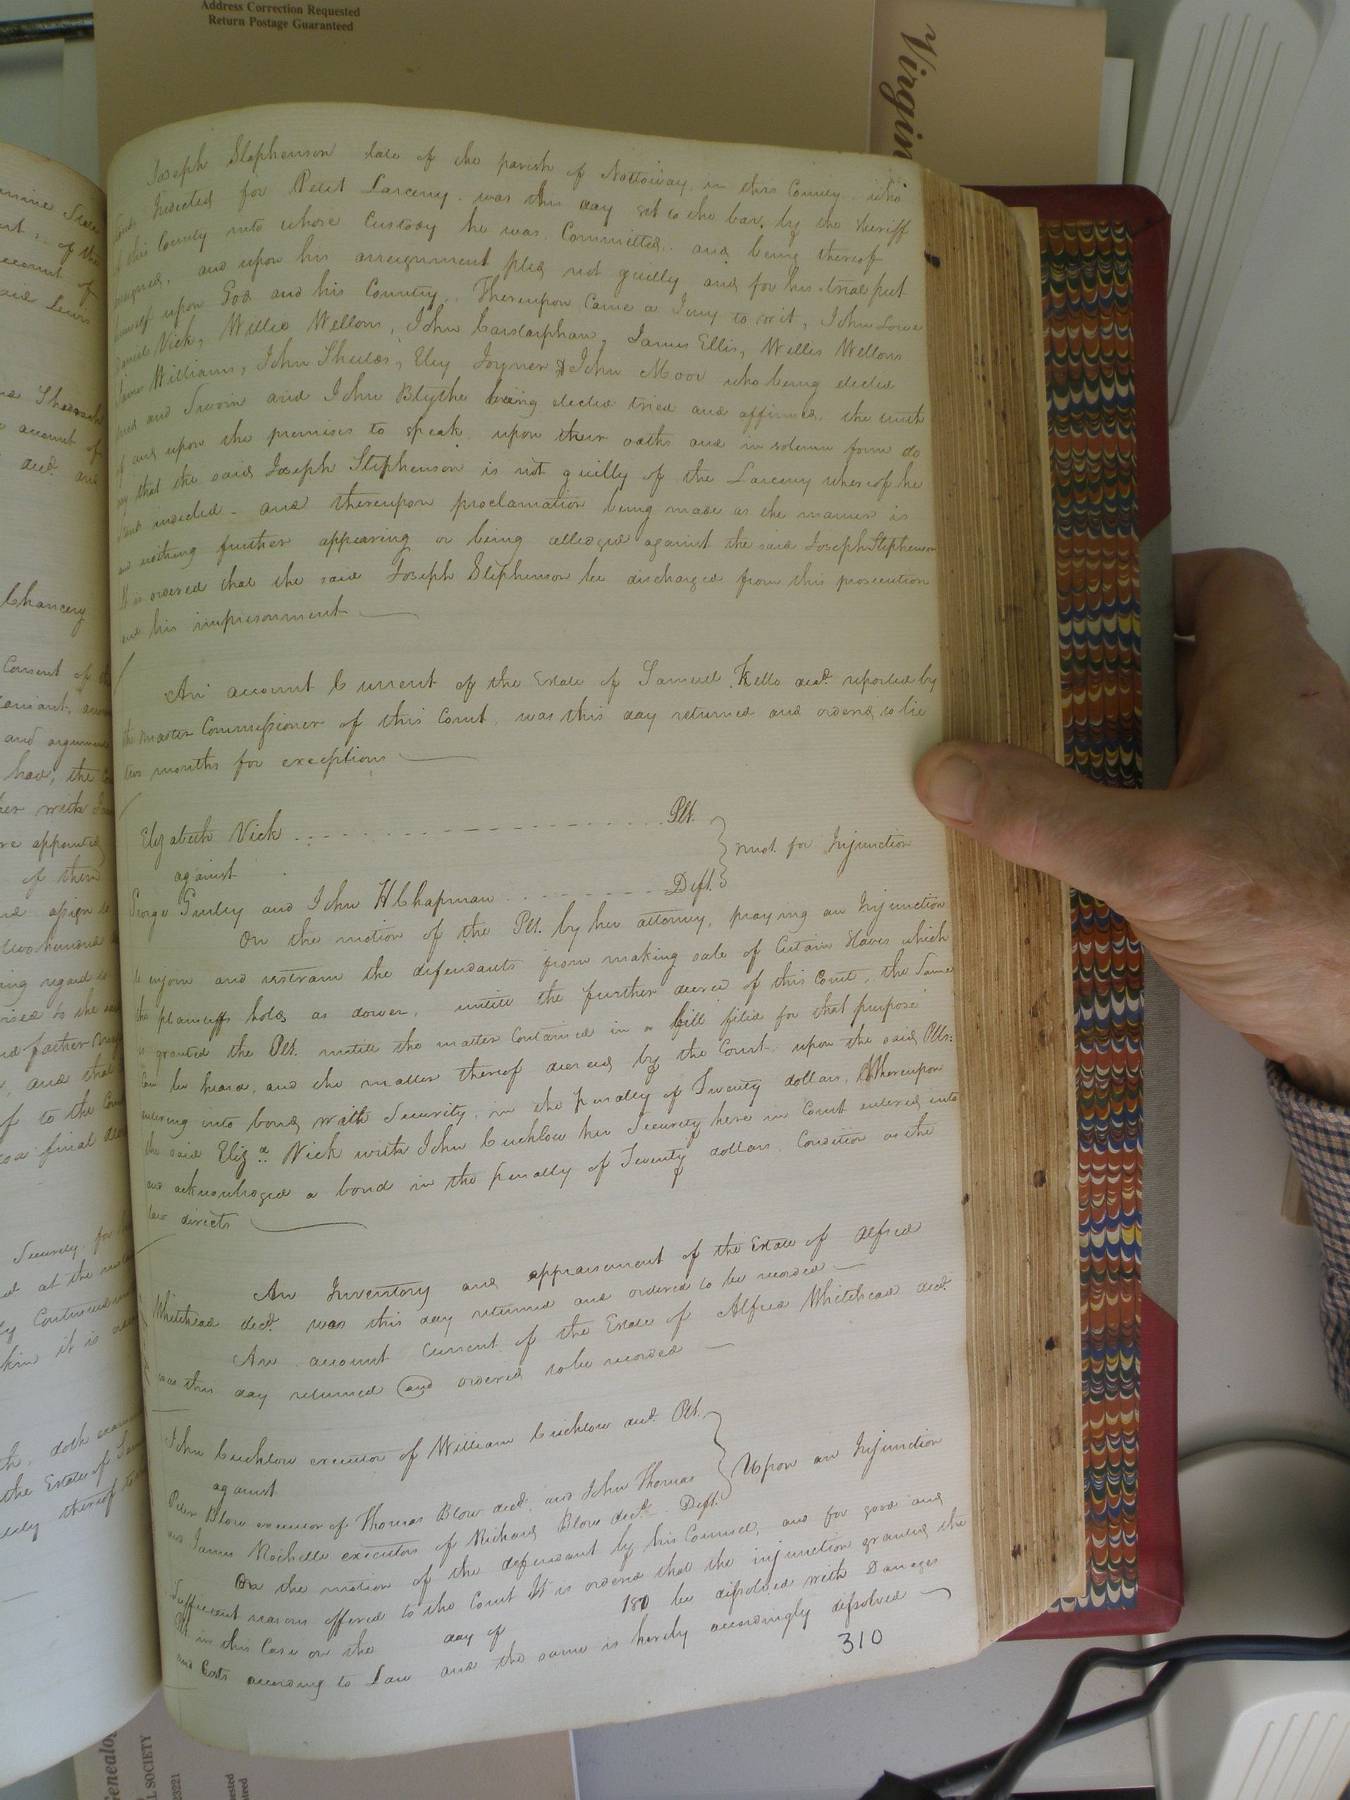 Address Correction Requested
Return Postage Guaranteed
Virgin
Joseph Stephenson late of the parish of Nottoway in this County who
stands Indicted for Petit Larceny was this day set to the bar by the Sheriff
of this County into whose Custody he was Committed and being thereof
arraigned, and upon his arraignment pled not guilty and for his trial put
himself upon God and his Country, Thereupon Came a Jury to wit, John Lowe
David Vick, Willie Wellons, John Carstarphan, James Ellis, Willis Wellons
James Williams, John Shields, Eley Joyner & John Moor who being elected
tried and Sworn and John Blythe being elected tried and affirmed, the truth
of and upon the premises to speak upon their oaths and in solemn form do
say that the said Joseph Stephenson is not guilty of the Larceny whereof he
stands indicted - and thereupon proclamation being made as the manner is
and nothing further appearing or being alledged against the said Joseph Stephenson
It is ordered that the said Joseph Stephenson be discharged from this prosecution
and his imprisonment
An account Current of the Estate of Samuel Kello decd. reported by
the Master Commissioner of this Court, was this day returned and ordered to lie
two months for exceptions
Elizabeth Vick Plt.
against } mot. for Injunction
George Gurley and John H Chapman Deft.
On the motion of the Plt. by her attorney, praying an Injunction
to enjoin and restrain the defendants from making sale of Certain Slaves which
the plaintiff holds as dower, untill the further decree of this Court, the Same
is granted the Plt. untill the matter Contained in a bill filed for that purpose
Can be heard, and the matter thereof decreed by the Court, upon the said Plts.
entering into bond with Security, in the penalty of Twenty dollars, Whereupon
the said Eliza. Vick with John Cuchlow her Security here in Court entered into
and acknowledged a bond in the penalty of Twenty dollars Condition as the
law directs
An Inventory and appraisement of the Estate of Alfred
Whitehead decd. was this day returned and ordered to be recorded
An account Current of the Estate of Alfred Whitehead decd.
was this day returned and ordered to be recorded
John Cuchlow executor of William Cuchlow decd. Plt.
against } Upon an Injunction
Peter Blow executor of Thomas Blow decd. and John Thomas
and James Rochelle executors of Richard Blow decd. Deft.
On the motion of the defendant by his Counsel, and for good and
Sufficient reasons offered to the Court It is ordered that the injunction granted the
Plt. in this Case on the day of 180 be dissolved with Damages
and Costs according to Law and the same is hereby accordingly dissolved
310
Chancery
Consent of
and argument
have, the
of them
two hundred
and that
of to the
final
Security for
at the
it is
doth
the Estate of
thereof
Genealog
L SOCIETY
23221